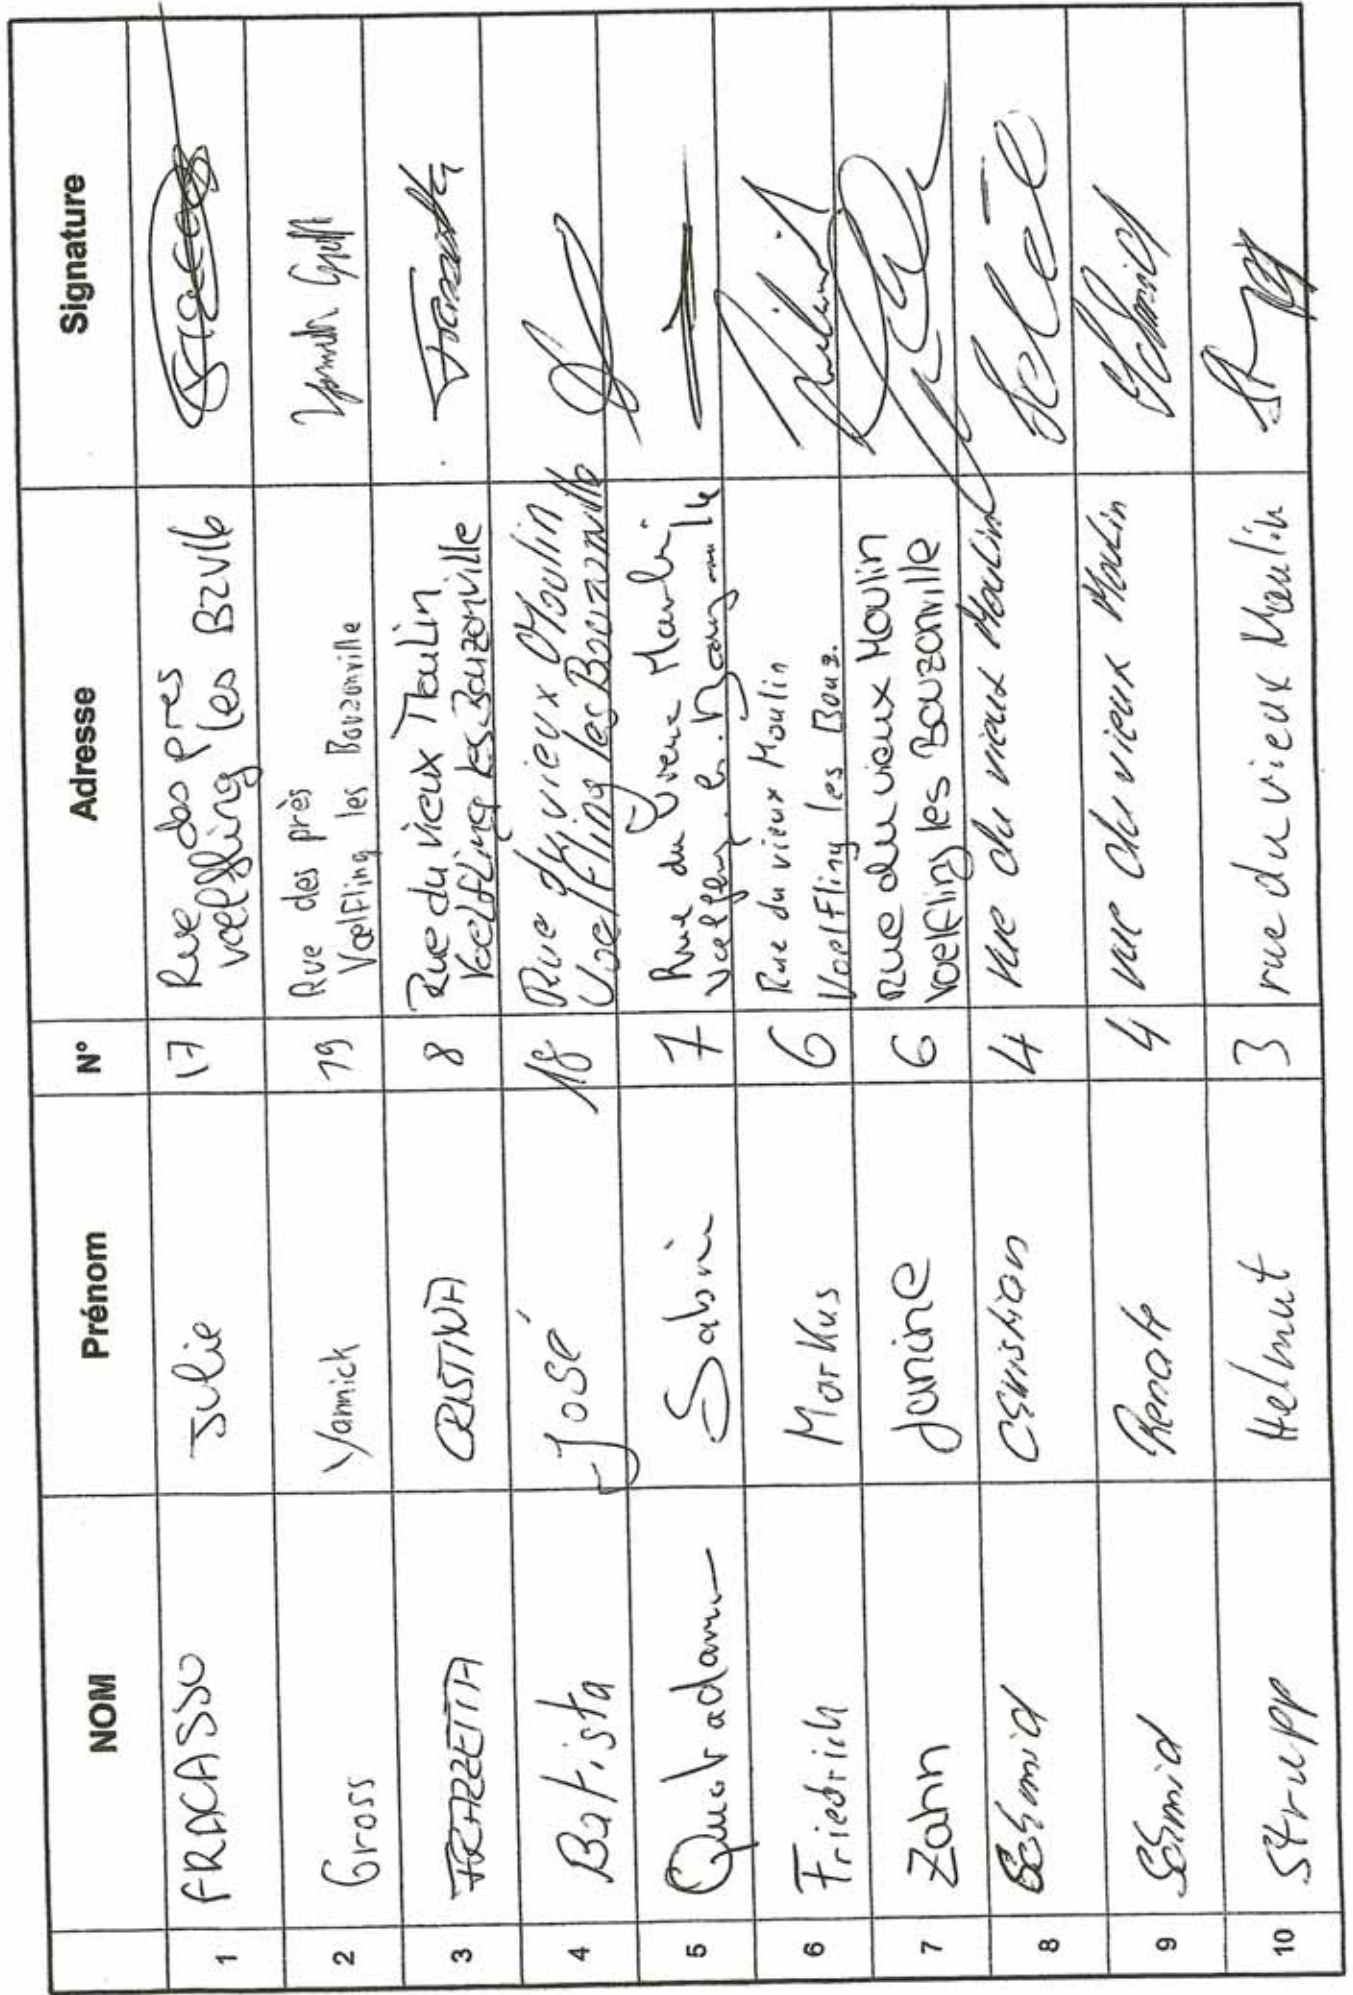 NOM Prénom N° Adresse Signature
1 FRACASSO Julie 17 Rue des près
voelfling les BZVILLE
2 Gross Yannick 19 Rue des près
Voelfling les Bouzonville
3 FRAZZETTA CRISTINA 8 Rue du vieux Moulin
Voelfling les Bouzonville
4 Batista José 18 Rue du vieux Moulin
Voelfling les Bouzonville
5 Sabine 7 Rue du
6 Friedrich Markus 6 Rue du vieux Moulin
Voelfling les Bouz.
7 Zahn Janine 6 Rue du vieux Moulin
Voelfling les Bouzonville
8 Schmid Christian 4 rue du vieux Moulin
9 Schmid Renate 4 rue du vieux Moulin
10 Strupp Helmut 3 rue du vieux Moulin